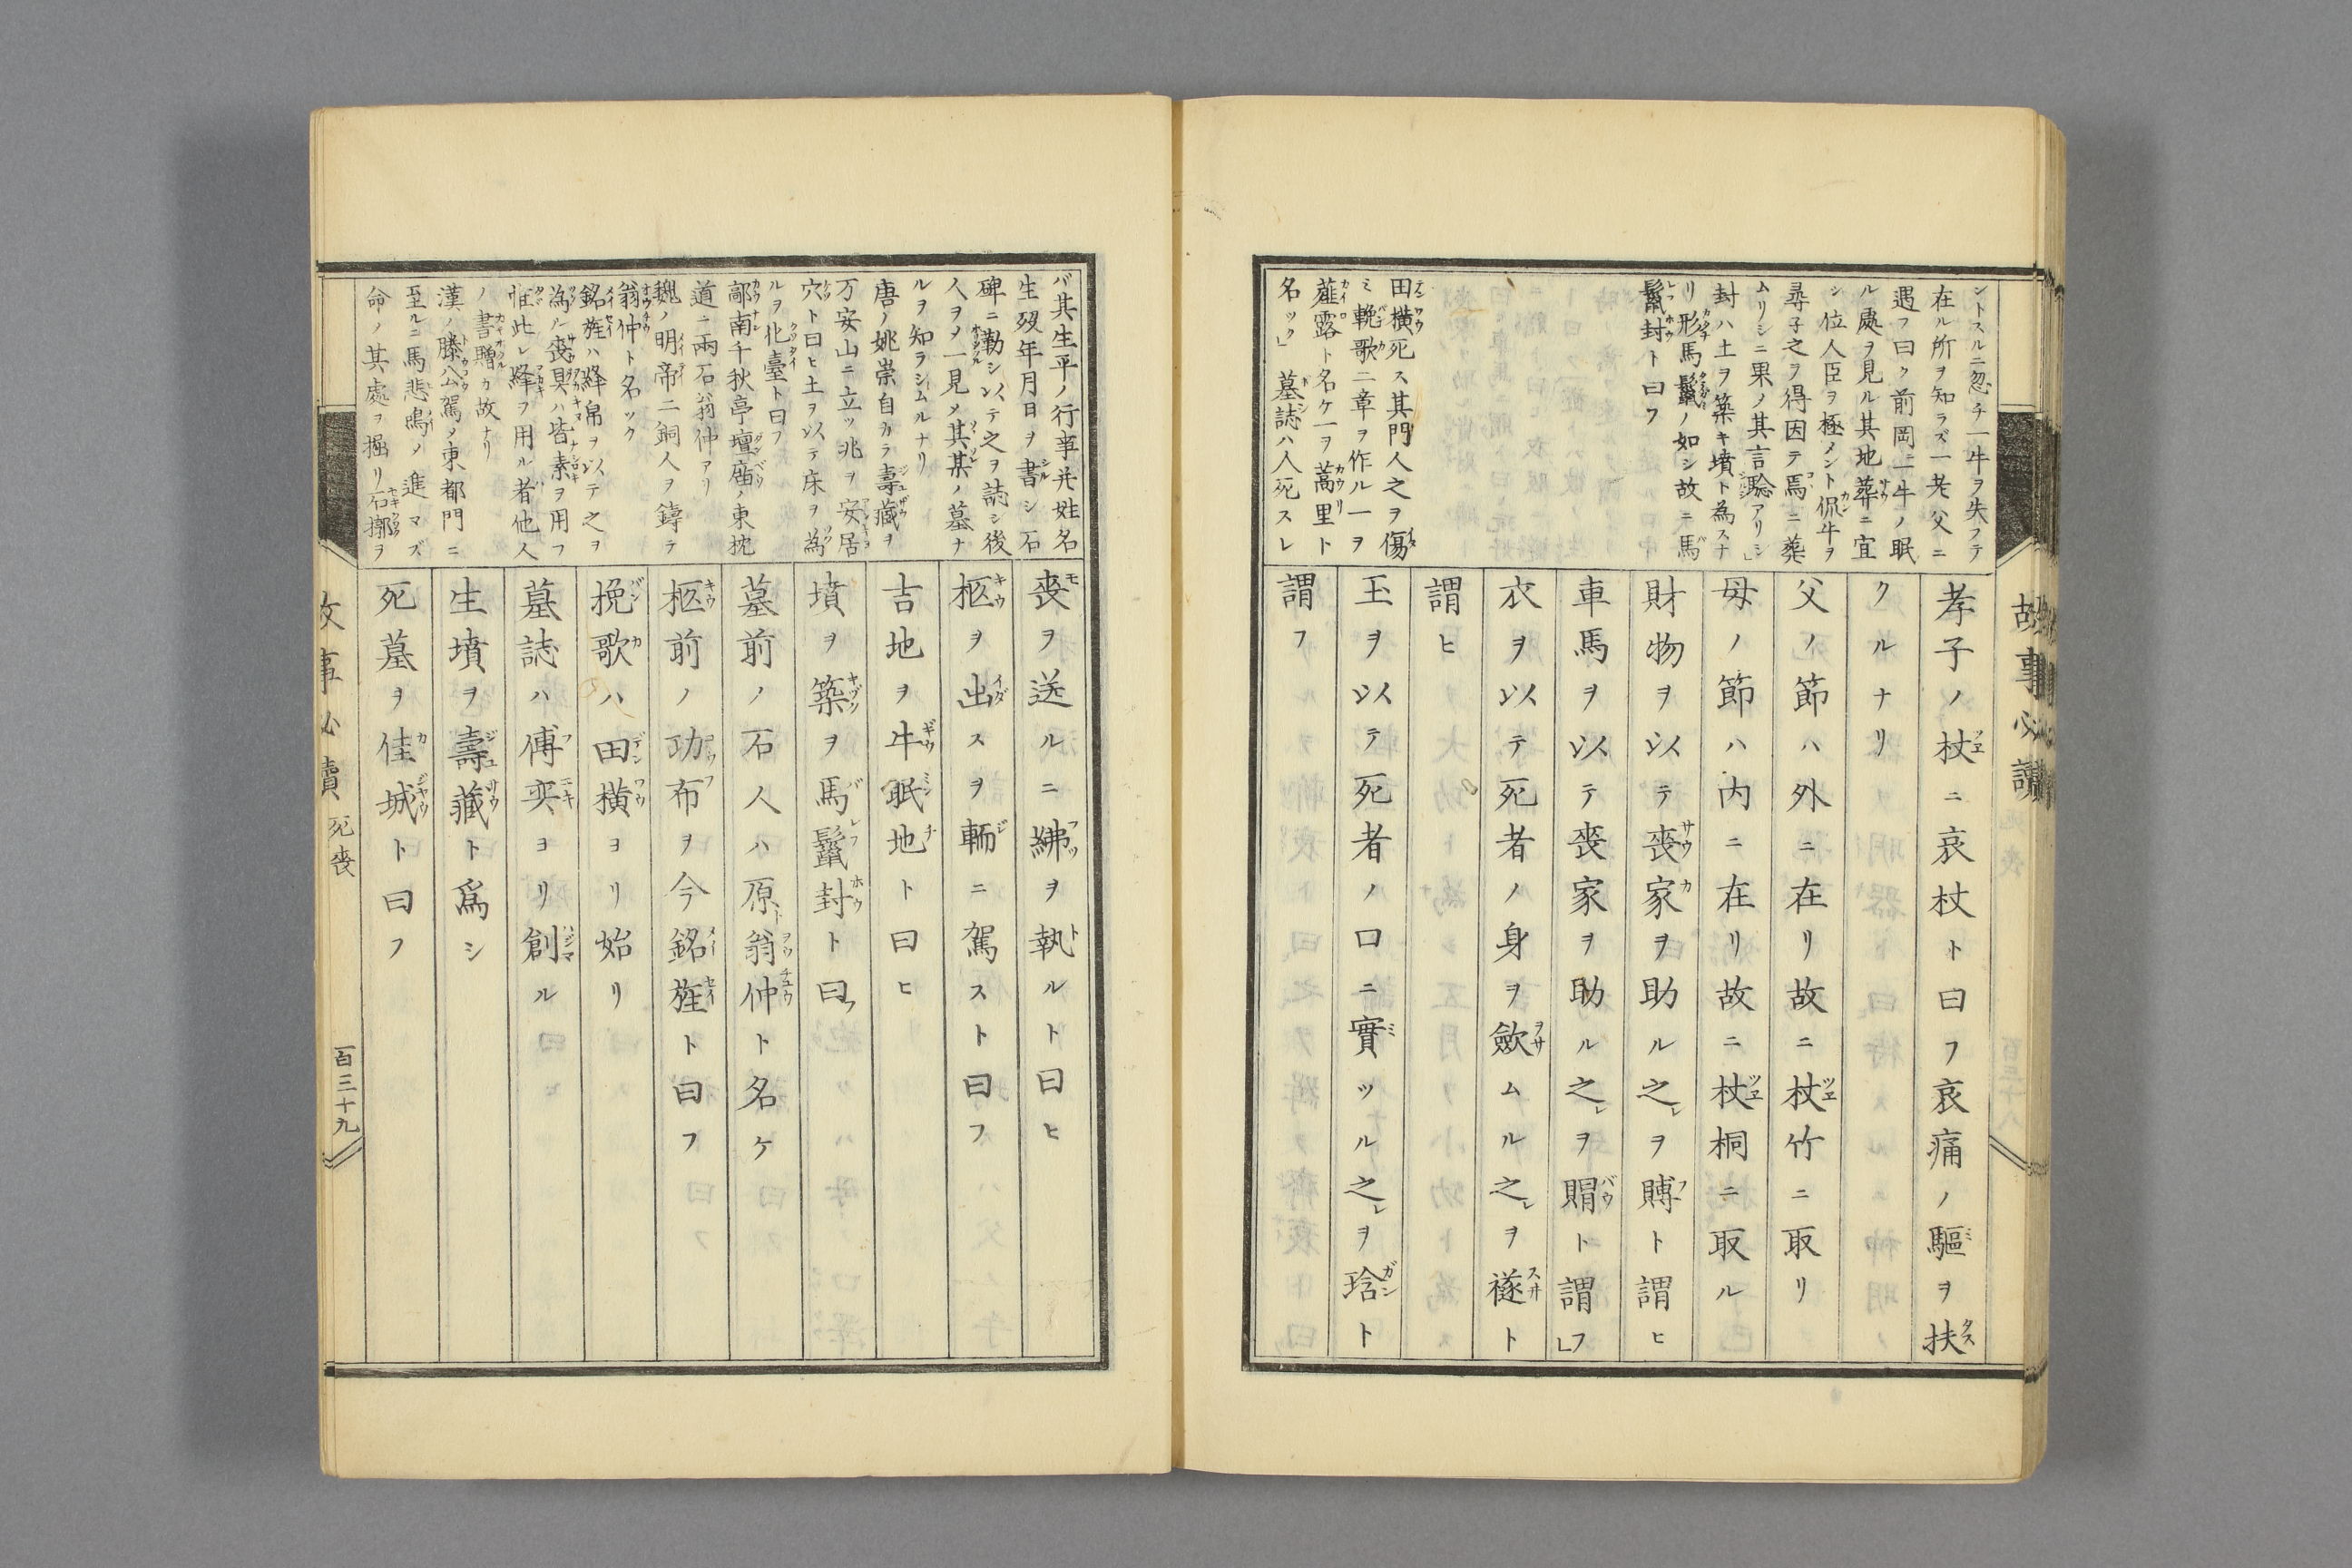 ントスルニ忽チ一牛ヲ失フテ
在ル所ヲ知ラズ一老父ニ
遇フ曰ク前岡ニ牛ノ眠
ル處ヲ見ル其地葬ニ宜
シ位人臣ヲ極メント侃牛ヲ
尋子之ヲ得因テ焉ニ葬
ムリシニ果ノ其言騐アリシ」
封ハ土ヲ築キ墳ト為スナ
リ形馬鬣ノ如シ故ニ馬
鬣封ト曰フ
田橫死ス其門人之ヲ傷
ミ輓歌二章ヲ作ル一ヲ
薤露ト名ケ一ヲ蒿里ト
名ツク」墓誌ハ人死スレ
孝子ノ杖ニ哀杖ト曰フ哀痛ノ軀ヲ扶
クルナリ
父ノ節ハ外ニ在リ故ニ杖竹ニ取リ
母ノ節ハ内ニ在リ故ニ杖桐ニ取ル
財物ヲ以テ喪家ヲ助ル之ヲ賻ト謂ヒ
車馬ヲ以テ喪家ヲ助ル之ヲ賵ト謂フ」
衣ヲ以テ死者ノ身ヲ歛ムル之ヲ襚ト
謂ヒ
玉ヲ以テ死者ノ口ニ實ツル之ヲ琀ト
謂フ
故事必讀
バ其生平ノ行事幷姓名
生歿年月日ヲ書シ石
碑ニ勒シ以テ之ヲ誌シ後
人ヲノ一見ノ其某ノ墓ナ
ルヲ知ラシムルナリ
唐ノ姚崇自カラ壽藏ヲ
万安山ニ立ツ兆ヲ安居
穴ト曰ヒ土ヲ以テ床ヲ為
ルヲ化臺ト曰フ
鄗南千秋亭壇廟ノ東枕
道ニ兩石翁仲アリ
魏ノ明帝二銅人ヲ鑄テ
翁仲ト名ツク
銘旌ハ絳帛ヲ以テ之ヲ
為ル喪具ハ皆素ヲ用フ
惟此レ絳ヲ用ル者他人
ノ書贈カ故ナリ
漢ノ滕公駕ノ東都門ニ
至ルニ馬悲鳴ノ進マズ
命ノ其處ヲ掘リ石槨ヲ
喪ヲ送ルニ紼ヲ執ルト曰ヒ
柩ヲ出スヲ輀ニ駕スト曰フ
吉地ヲ牛眠地ト曰ヒ
墳ヲ築ヲ馬鬣封ト曰フ
墓前ノ石人ハ原ト翁仲ト名ケ
柩前ノ功布ヲ今銘旌ト曰フ
挽歌ハ田橫ヨリ始リ
墓誌ハ傅奕ヨリ創ル
生墳ヲ壽藏ト爲シ
死墓ヲ佳城ト曰フ
故事必讀 死喪 百三十九